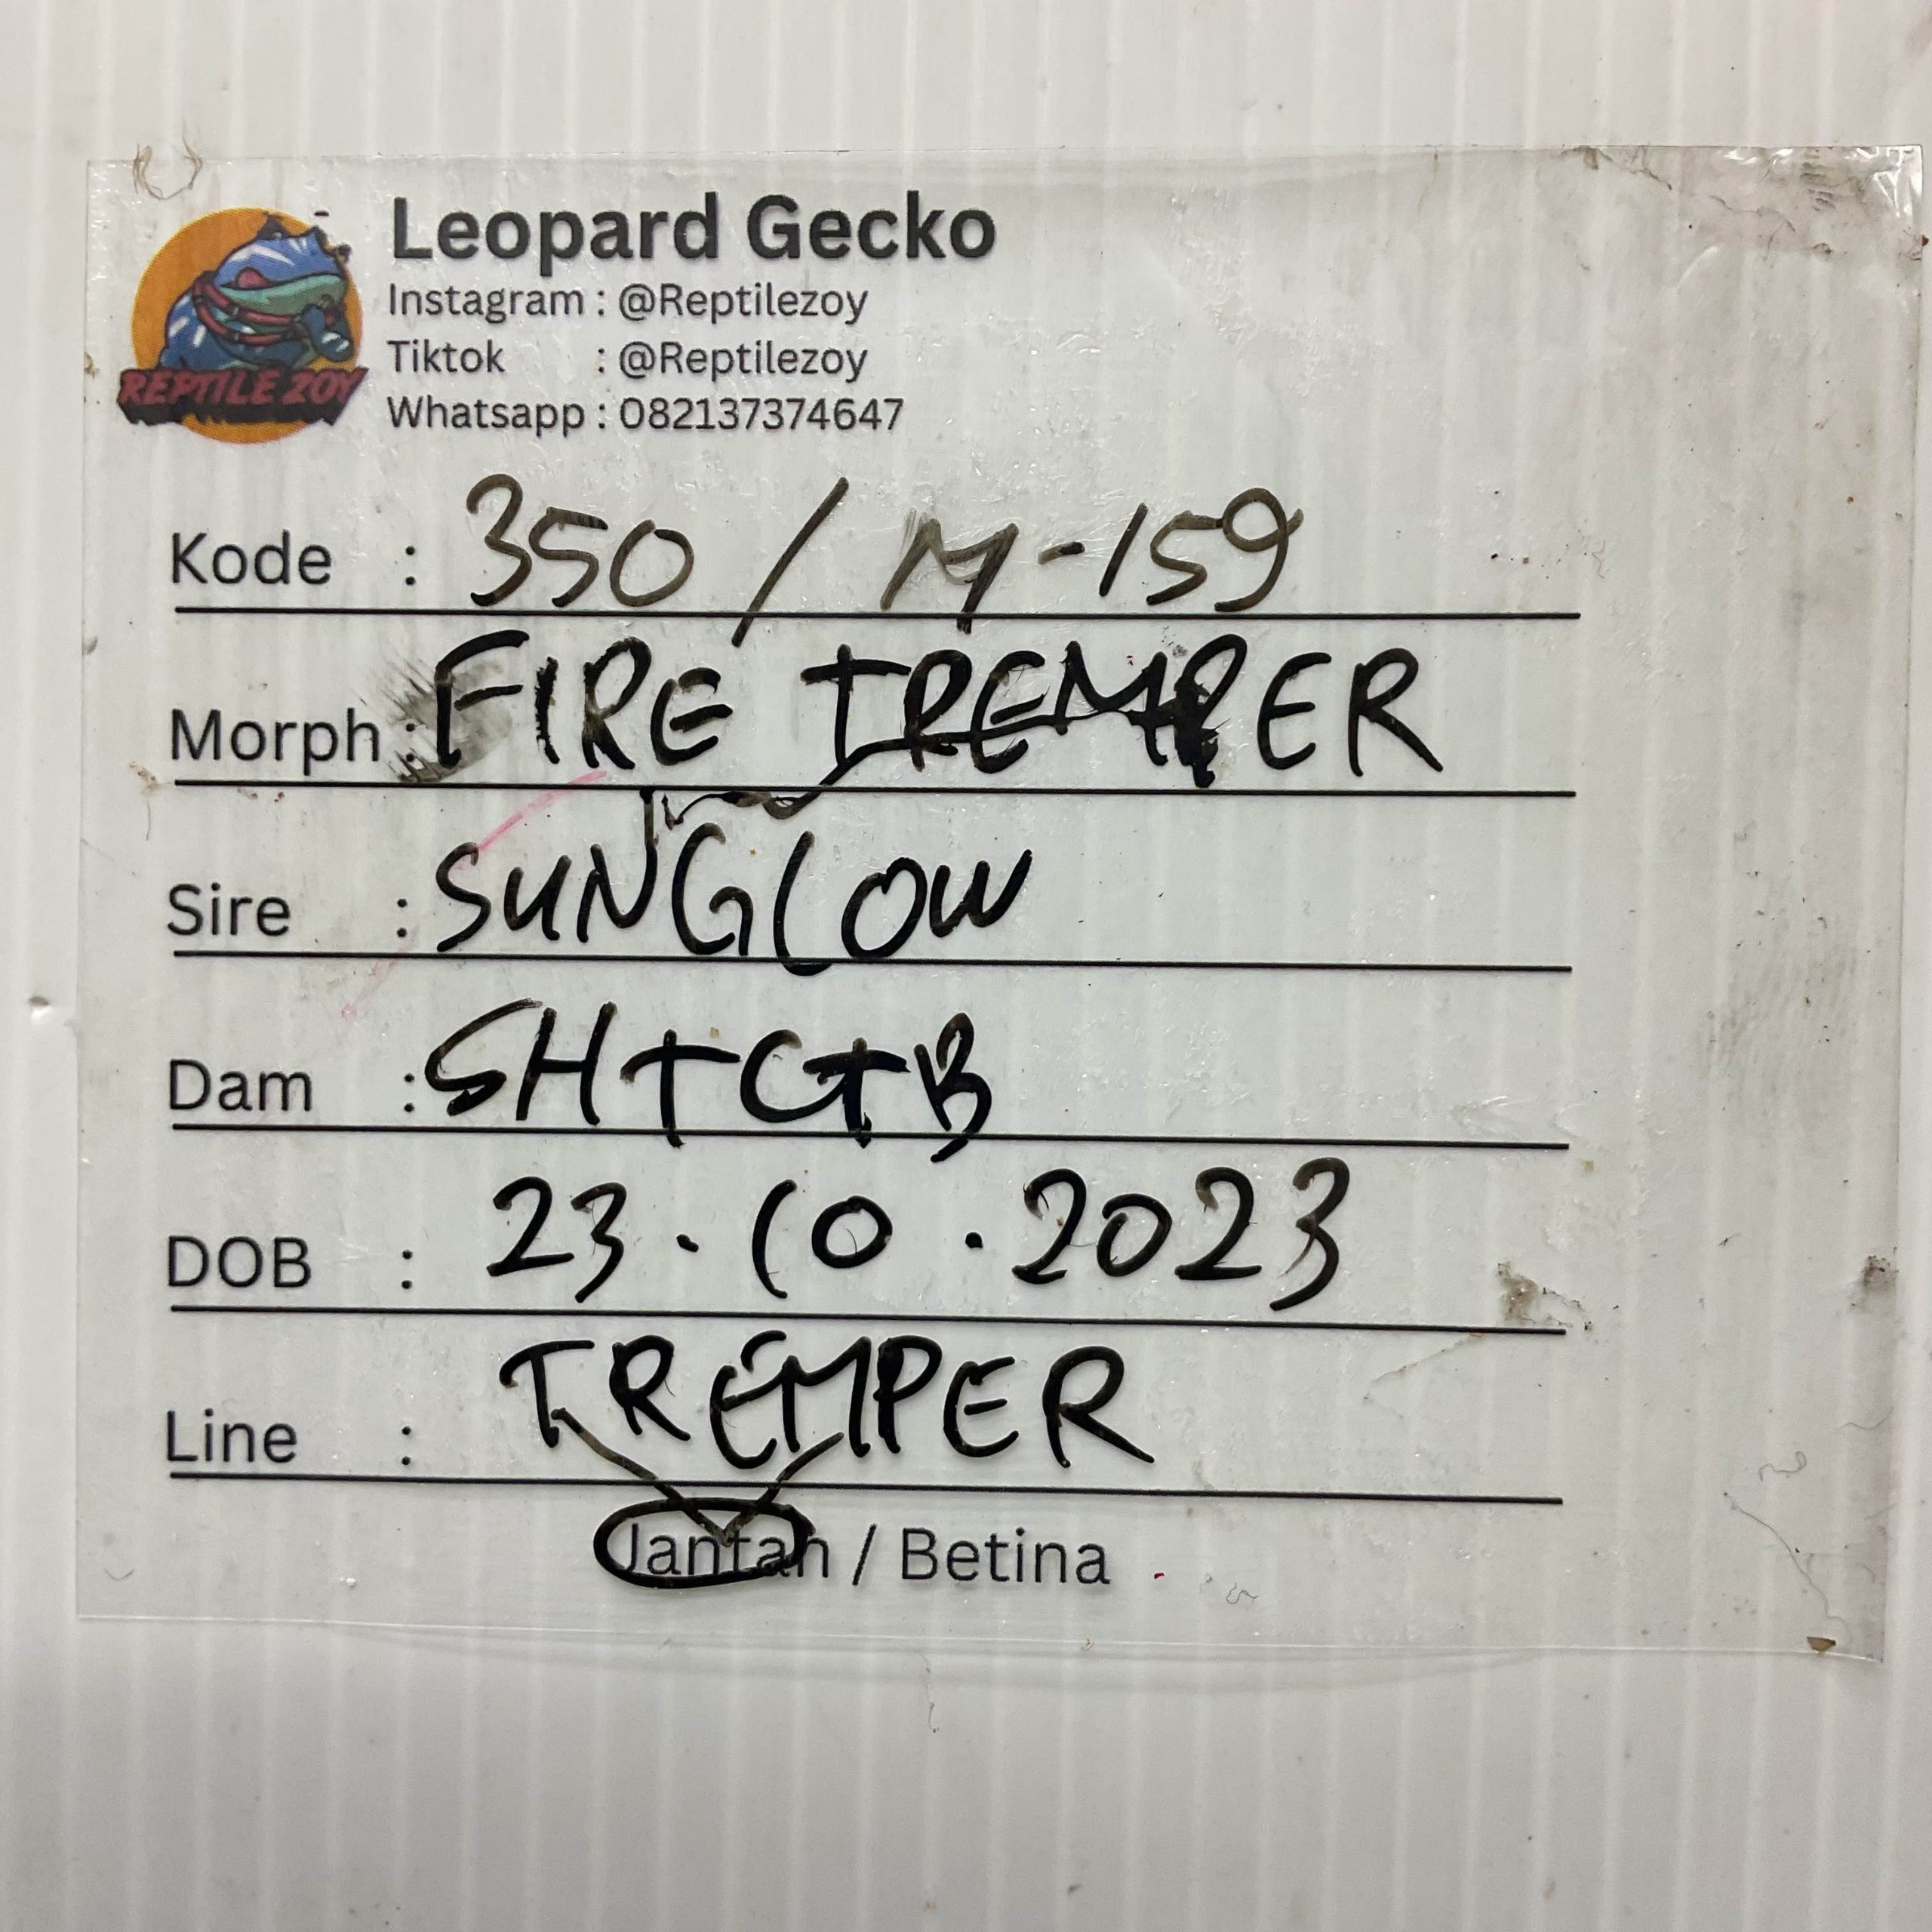 Leopard Gecko
Instagram : @Reptilezoy
Tiktok : @Reptilezoy
Whatsapp : 082137374647
REPTILE ZOY
Kode : 350 / M-159
Morph : FIRE TREMPER
Sire : SUNGLOW
Dam : SHTCTB
DOB : 23.10.2023
Line : TREMPER
Jantan / Betina